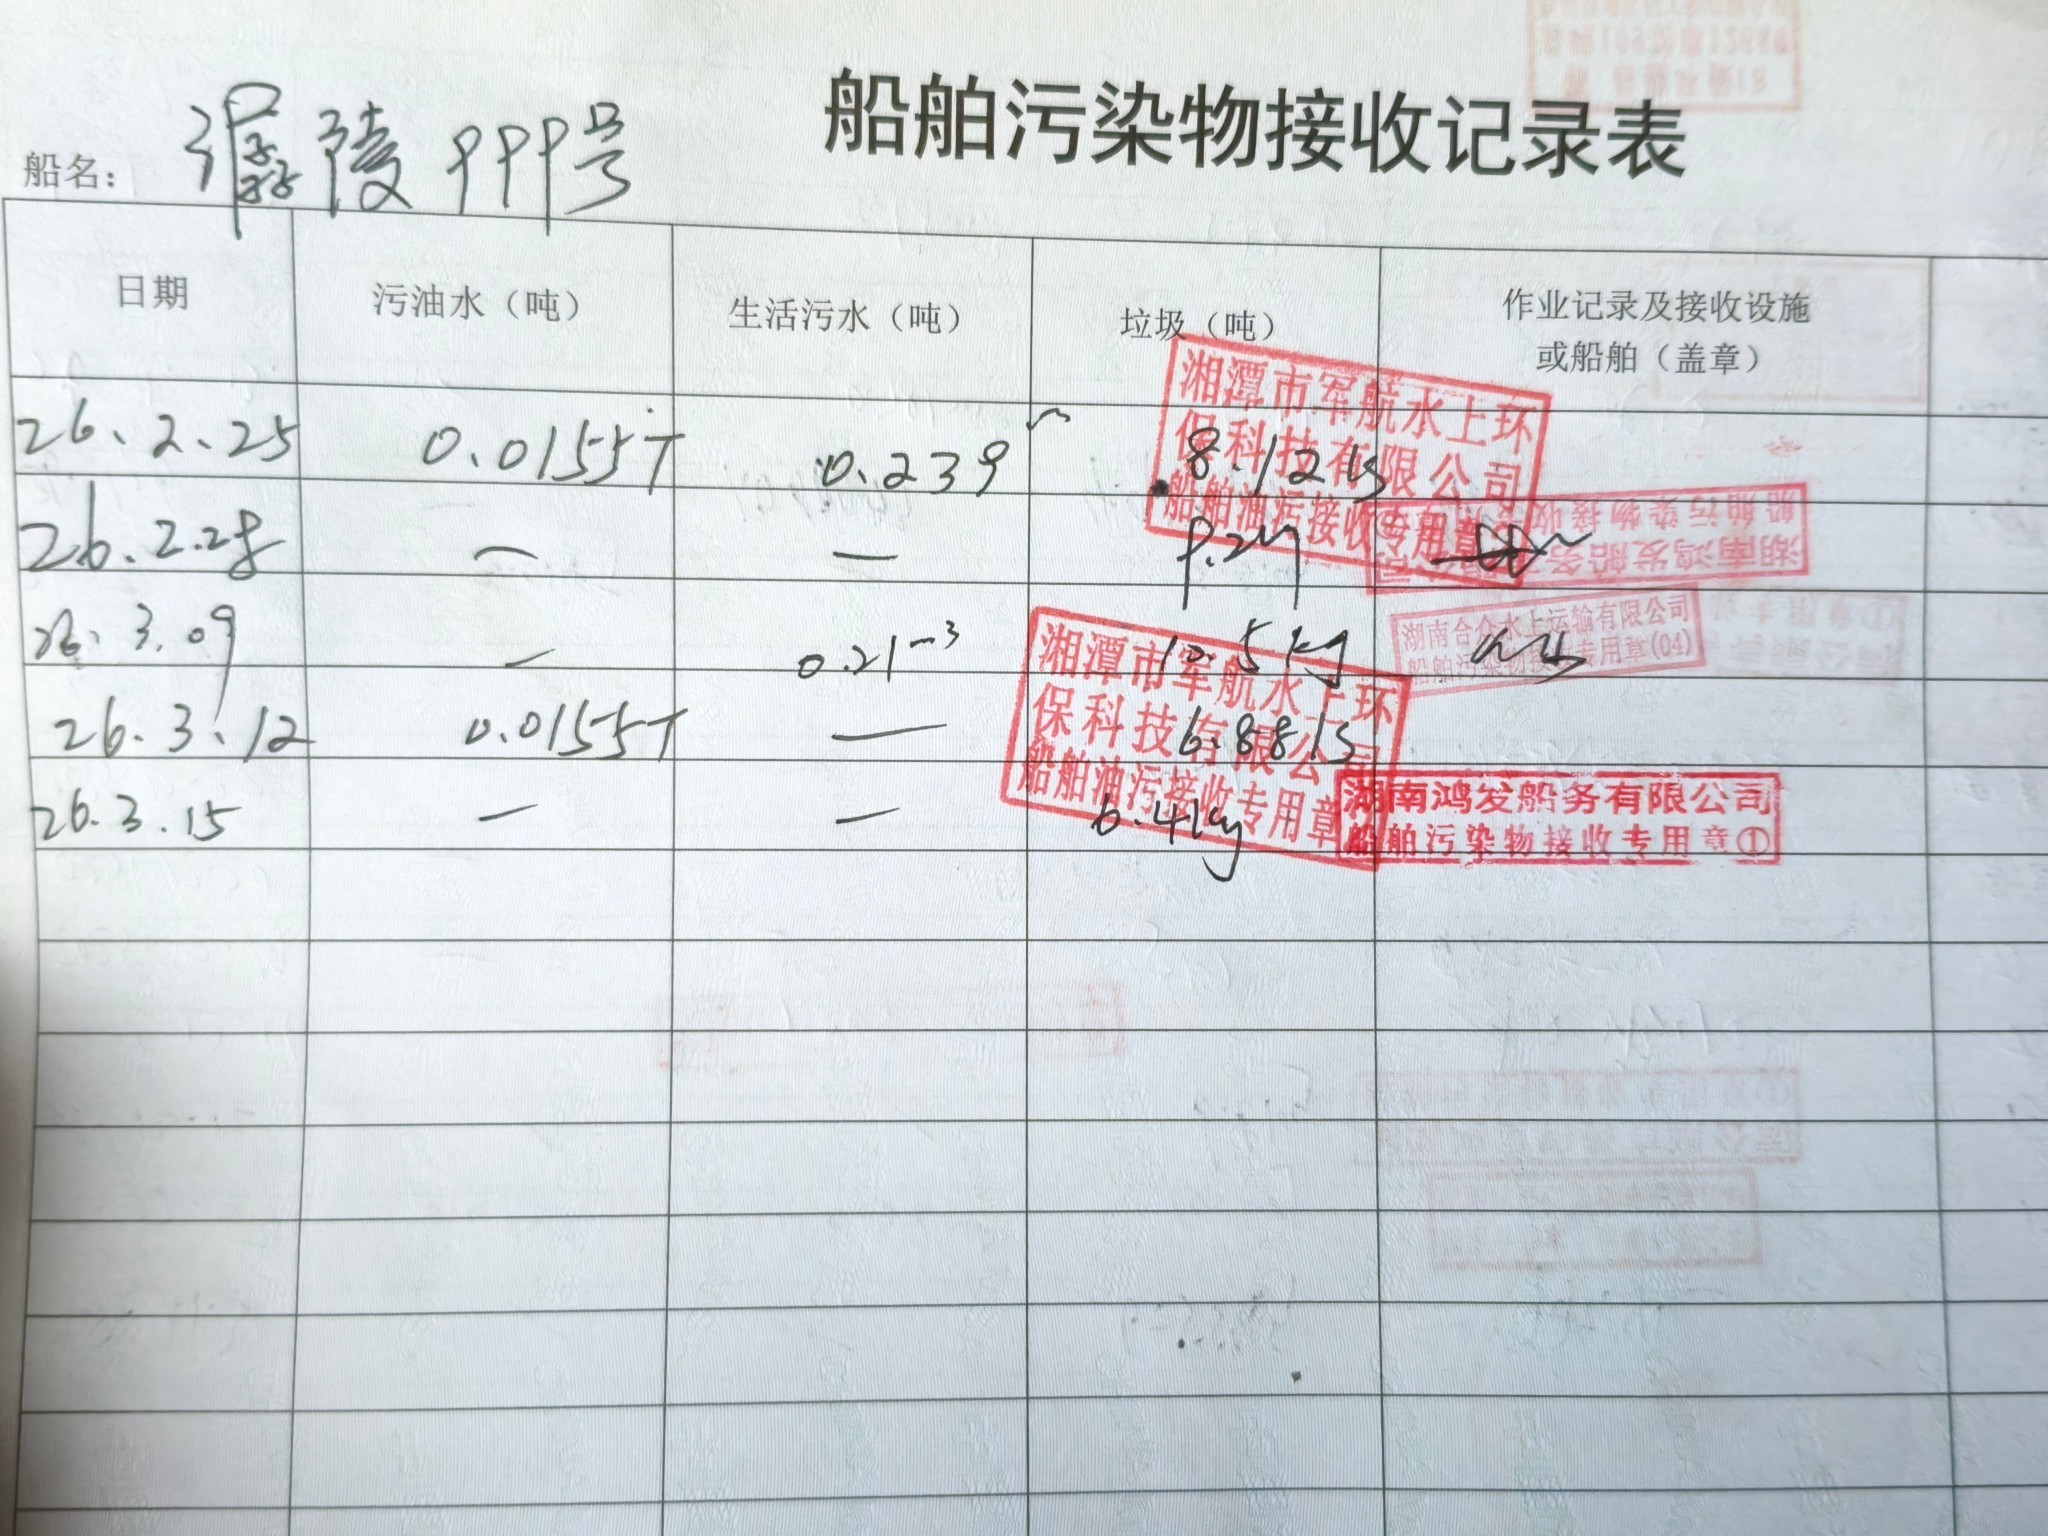 船舶污染物接收记录表
船名： 潺陵999号
日期 污油水（吨） 生活污水（吨） 垃圾（吨） 作业记录及接收设施
或船舶（盖章）
26.2.25 0.0155T 0.239 8.12
湘潭市军航水上环
保科技有限公司
船舶油污接收专用章
26.2.28 — —
湖南鸿发船务有限公司
船舶污染物接收
26.3.09 — 0.21m³ 10.5kg
湖南合众水上运输有限公司
船舶污染物接收专用章(04)
26.3.12 0.0155T — 6.88
湘潭市军航水上环
保科技有限公司
船舶油污接收专用章
26.3.15 — — 6.4kg
湖南鸿发船务有限公司
船舶污染物接收专用章①